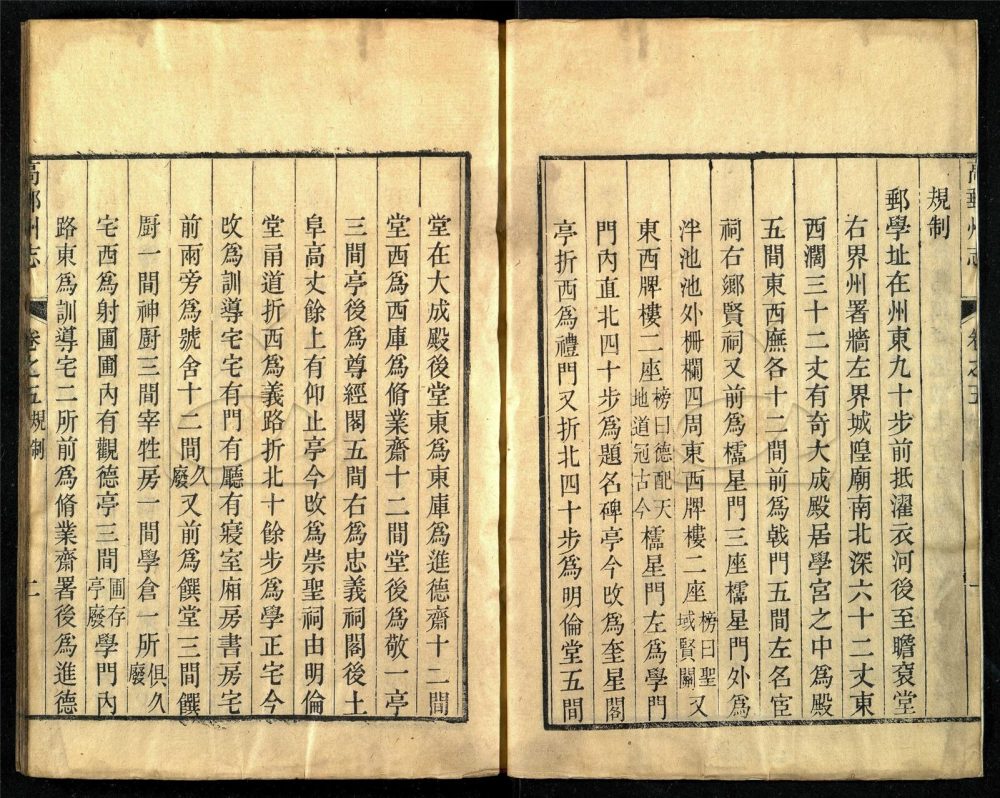 高郵州志
卷之五
一
規制
郵學址在州東九十步前抵濯衣河後至瞻袞堂
右界州署牆左界城隍廟南北深六十二丈東
西濶三十二丈有奇大成殿居學宮之中爲殿
五間東西廡各十二間前爲戟門五間左名宦
祠右鄉賢祠又前爲櫺星門三座櫺星門外爲
泮池池外柵欄四周東西牌樓二座榜曰聖域賢關又
東西牌樓二座榜曰德配天地道冠古今櫺星門左爲學門
門內直北四十步爲題名碑亭今改爲奎星閣
亭折西爲禮門又折北四十步爲明倫堂五間
堂在大成殿後堂東爲東庫爲進德齋十二間
堂西爲西庫爲脩業齋十二間堂後爲敬一亭
三間亭後爲尊經閣五間右爲忠義祠閣後土
阜高丈餘上有仰止亭今改爲崇聖祠由明倫
堂甬道折西爲義路折北十餘步爲學正宅今
改爲訓導宅宅有門有廳有寢室廂房書房宅
前兩旁爲號舍十二間久廢又前爲饌堂三間饌
厨一間神厨三間宰牲房一間學倉一所俱久廢
宅西爲射圃圃內有觀德亭三間圃存亭廢學門內
路東爲訓導宅二所前爲脩業齋署後爲進德
高郵州志
卷之五 規制
二